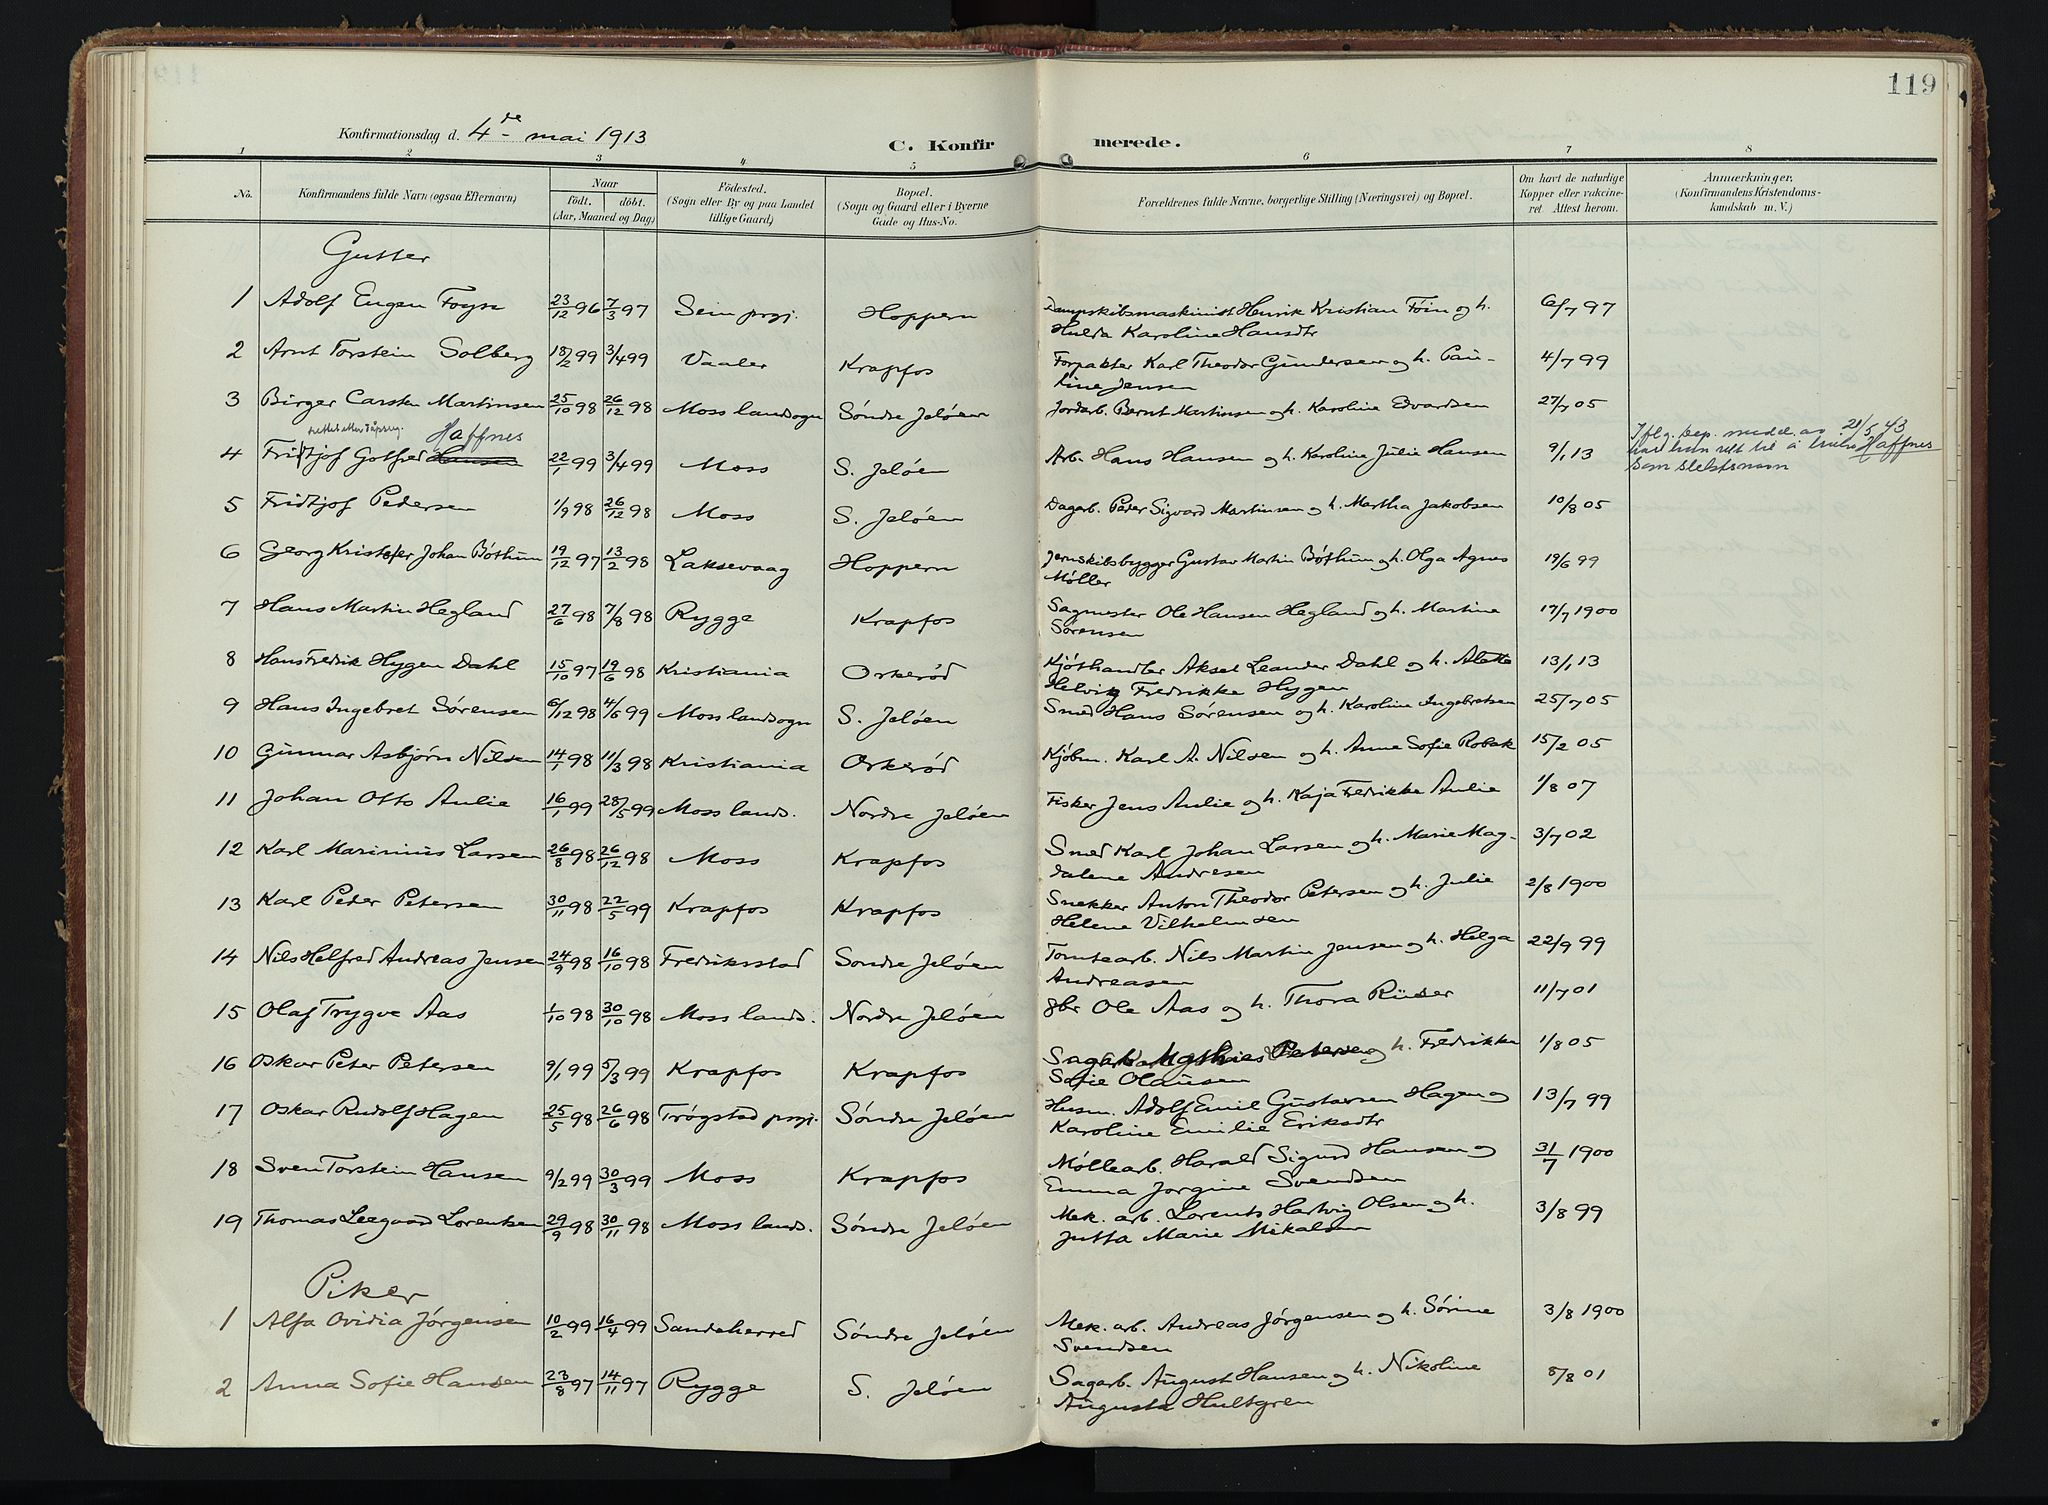 119
Konfirmationsdag d. 4de mai 1913
C. Konfirmerede.
1 2 3 4 5 6 7 8
No. Konfirmandens fulde Navn (ogsaa Efternavn) Naar födt. döbt. (Aar, Maaned og Dag) Födested. (Sogn eller By og paa Landet tillige Gaard) Bopæl. (Sogn og Gaard eller i Byerne Gade og Hus-No. Forældrenes fulde Navne, borgerlige Stilling (Næringsvei) og Bopæl. Om havt de naturlige Kopper eller vaccineret Attest herom. Anmærkninger. (Konfirmandens Kristendomskundskab m. V.)
Gutter
1 Adolf Eugen Foyn 23/12 96 7/3 97 Sem prgj. Hoppern Dampskibsmaskinist Henrik Kristian Föin og h. 6/7 97
Hulda Karoline Hansdtr
2 Arnt Torstein Solberg 18/2 99 3/4 99 Vaaler Krapfos Forpakter Karl Theodor Gundersen og h. Pau- 4/7 99
line Jensen
3 Birger Carsten Martinsen 25/10 98 26/12 98 Moss landsogn Söndre Jelöen Jordarb. Bernt Martinsen og h. Karoline Edvardsen 27/7 05
rettet etter dåpsreg. Haffnes
4 Fridtjof Gotfred Hansen 22/1 99 3/4 99 Moss S. Jelöen Arb. Hans Hansen og h. Karoline Julie Hansen 9/1 13
Iflg. dep. meddel. av 21/5 43
har han rett til å bruke Haffnes
som slektsnavn
5 Fridtjof Pedersen 1/9 98 26/12 98 Moss S. Jelöen Dagarb. Peder Sigvard Martinsen og h. Martha Jakobsen 10/8 05
6 Georg Kristofer Johan Böthun 19/12 97 13/2 98 Laksevaag Hoppern Jernskibsbygger Gustav Martin Böthun og h. Olga Agnes 19/6 99
Möller
7 Hans Martin Hegland 27/6 98 7/8 98 Rygge Krapfos Sagmester Ole Hansen Hegland og h. Martine 17/7 1900
Sörensen
8 Hans Fredrik Hygen Dahl 15/10 97 19/6 98 Kristiania Orkeröd Kjöthandler Aksel Leander Dahl og h. Alette 13/1 13
Helvig Fredrikke Hygen
9 Hans Ingebret Sörensen 6/12 98 4/6 99 Moss landsogn S. Jelöen Smed Hans Sörensen og h. Karoline Ingebretsen 25/7 05
10 Gunnar Asbjörn Nilsen 14/1 98 11/3 98 Kristiania Orkeröd Kjöbm. Karl A. Nilsen og h. Anne Sofie Robak 15/2 05
11 Johan Otto Aulie 16/1 99 28/5 99 Moss lands. Nordre Jelöen Fisker Jens Aulie og h. Kaja Fredrikke Aulie 1/8 07
12 Karl Marinius Larsen 26/8 98 26/12 98 Moss Krapfos Smed Karl Johan Larsen og h. Marie Mag- 3/7 02
dalene Andresen
13 Karl Peder Petersen 30/11 98 22/5 99 Krapfos Krapfos Snekker Anton Theodor Petersen og h. Julie 2/8 1900
Helene Vilhelmsen
14 Nils Helfred Andreas Jensen 24/9 98 16/10 98 Fredriksstad Sondre Jelöen Tomtearb. Nils Martin Jensen og h. Helga 22/9 99
Andreasen
15 Olaf Trygve Aas 1/10 98 30/10 98 Moss lands. Nordre Jelöen gbr Ole Aas og h. Thora Rüder 11/7 01
16 Oskar Peter Petersen 9/1 99 5/3 99 Krapfos Krapfos Sagarb. Mathias Petersen og h. Fredrikke 1/8 05
Sofie Olausen
17 Oskar Rudolf Hagen 25/5 98 26/6 98 Trögstad prgj. Söndre Jelöen Husm. Adolf Emil Gustavsen Hagen og 13/7 99
Karoline Emilie Eriksdtr
18 Sven Torstein Hansen 9/2 99 30/3 99 Moss Krapfos Möllearb. Harald Sigurd Hansen og 31/7 1900
Emma Jorgine Svendsen
19 Thomas Leegaard Lorentsen 29/9 98 30/11 98 Moss lands. Söndre Jelöen Mek. arb. Lorents Hartvig Olsen og h. 3/8 99
Jutta Marie Mikalsen
Piker
1 Alfa Ovidia Jörgensen 10/2 99 16/4 99 Sandeherred Söndre Jelöen Mek. arb. Andreas Jörgensen og h. Sörine 3/8 1900
Svendsen
2 Anna Sofie Hansen 23/8 97 14/11 97 Rygge S. Jelöen Sagarb. August Hansen og h. Nikoline 8/8 01
Augusta Hultgren